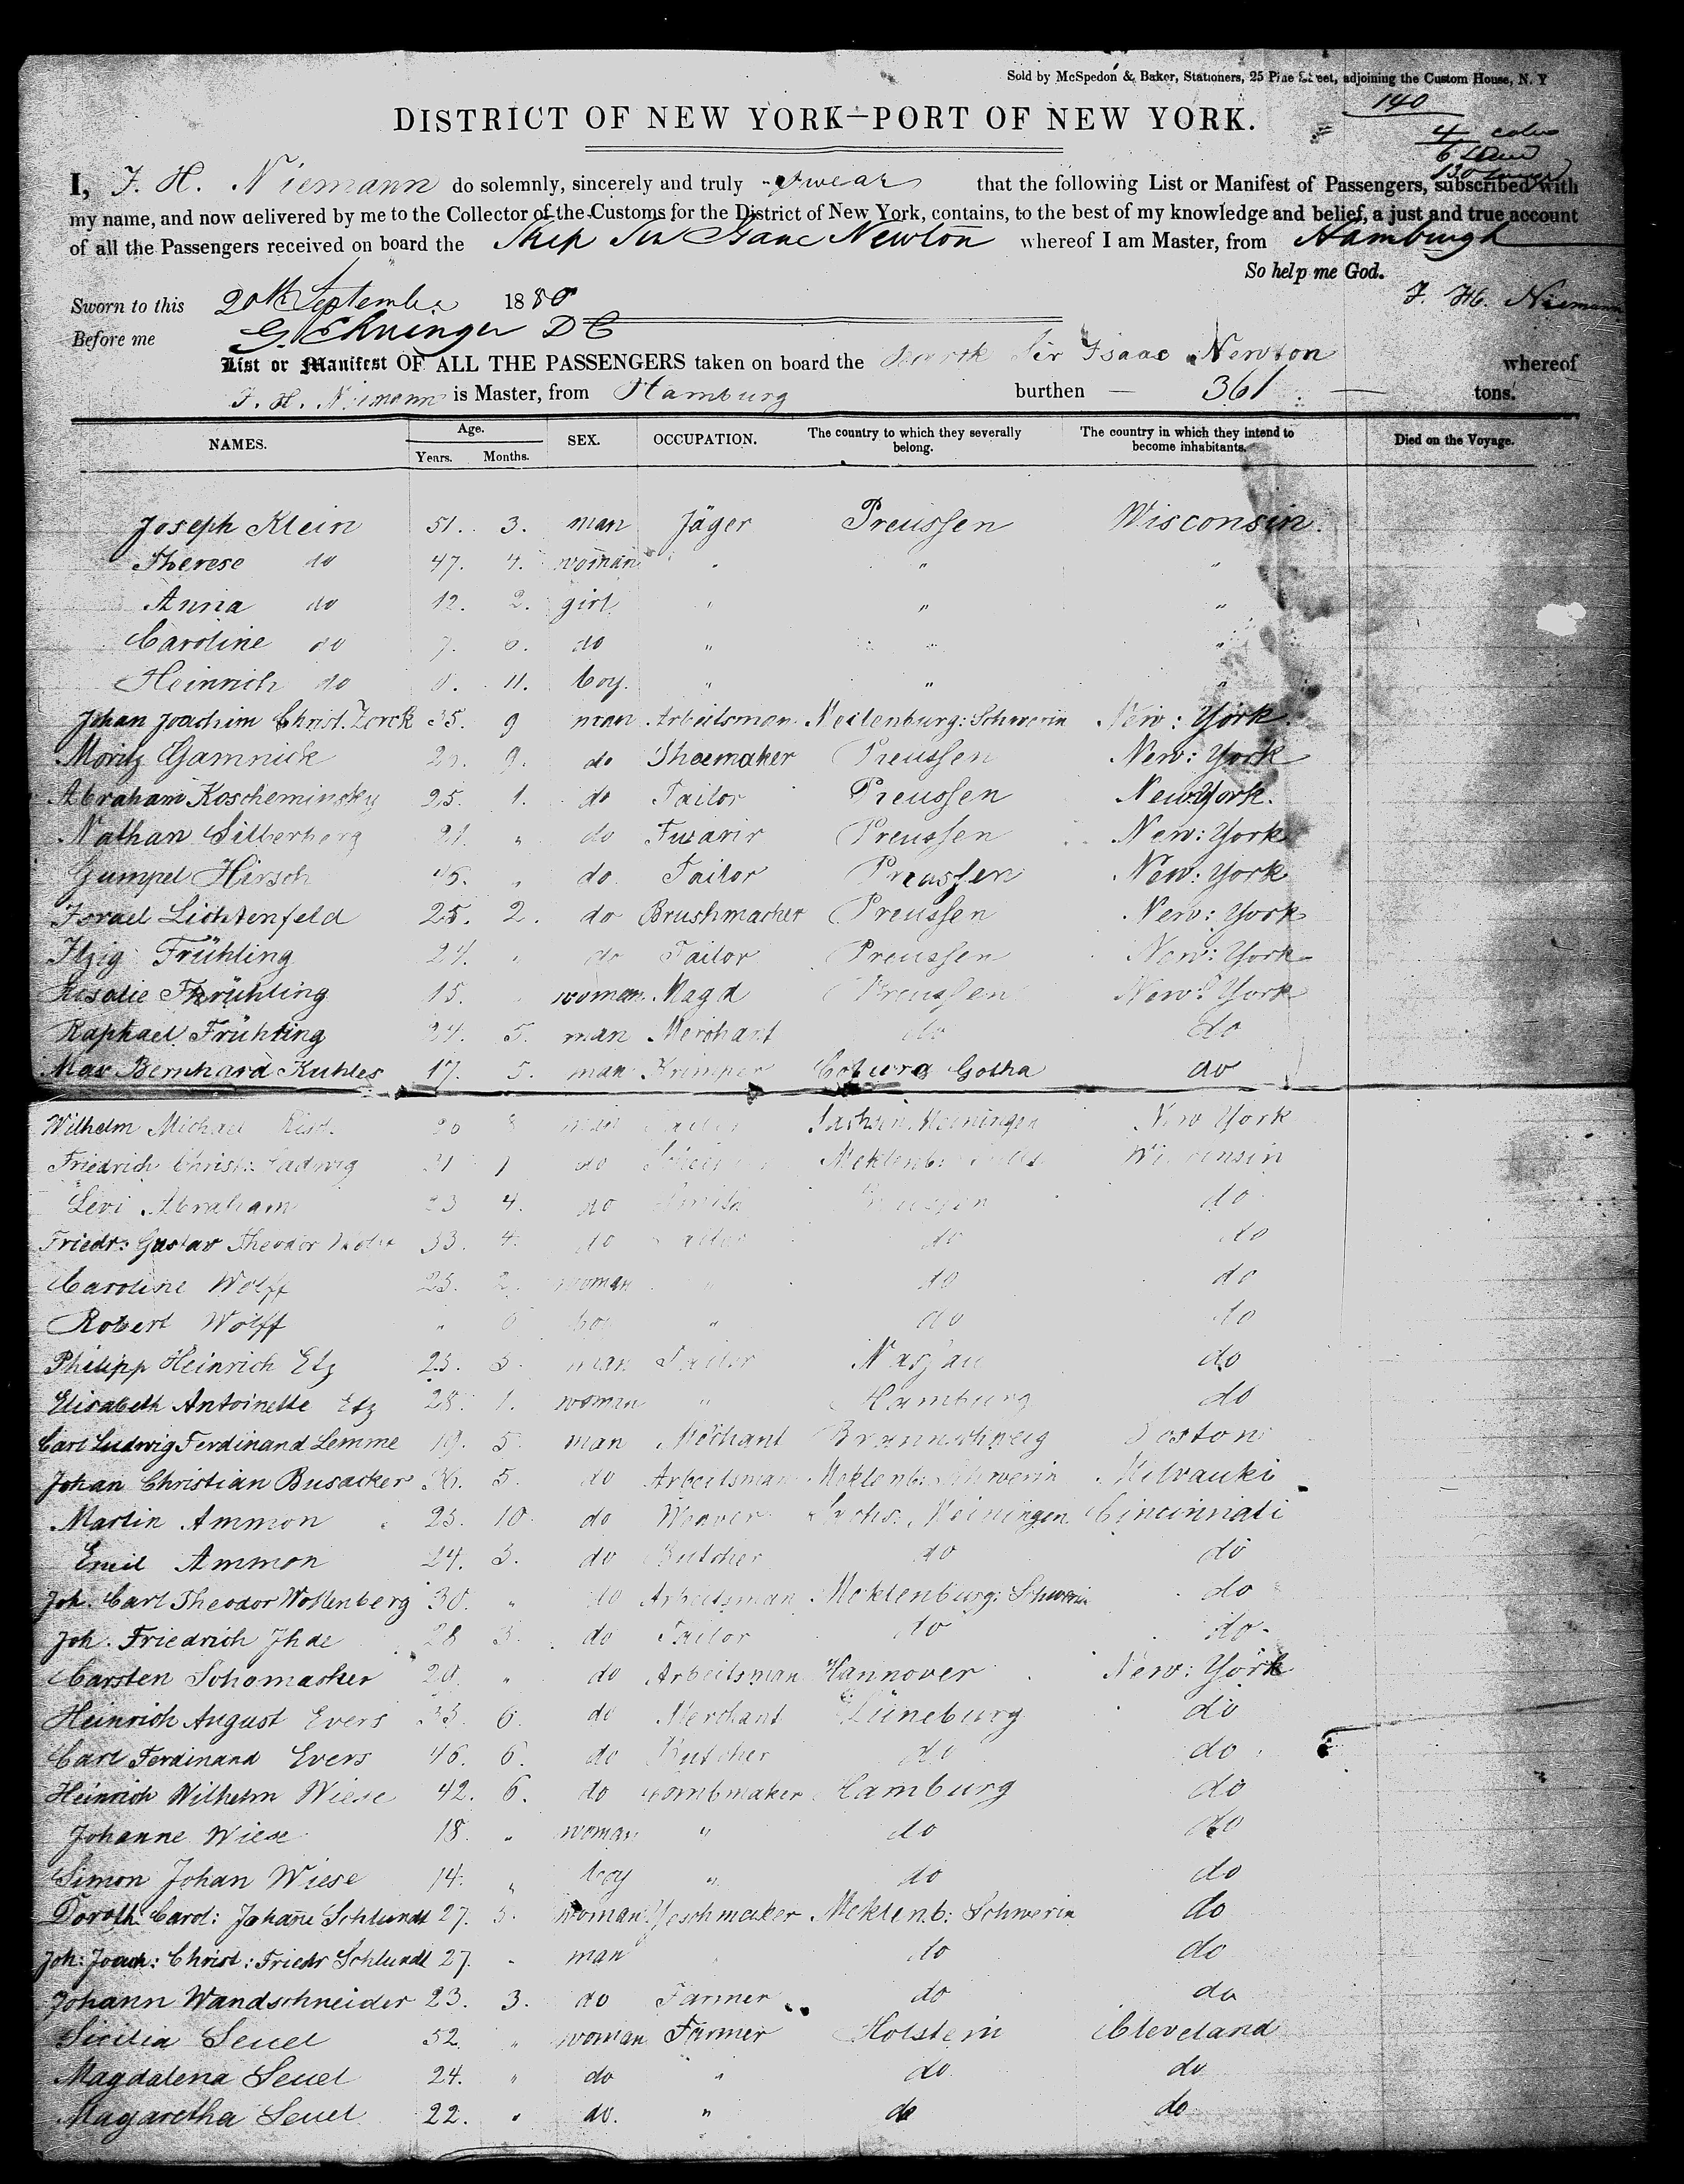 Sold by McSpedon & Baker, Stationers, 25 Pine Street, adjoining the Custom House, N. Y
140
DISTRICT OF NEW YORK—PORT OF NEW YORK.
4
6
130
I, F. H. Niemann do solemnly, sincerely and truly swear that the following List or Manifest of Passengers, subscribed with
my name, and now delivered by me to the Collector of the Customs for the District of New York, contains, to the best of my knowledge and belief, a just and true account
of all the Passengers received on board the Ship Sir Isaac Newton whereof I am Master, from Hamburgh
So help me God.
Sworn to this 20th September 1850 F. H. Niemann
Before me D C
List or Manifest OF ALL THE PASSENGERS taken on board the Bark Sir Isaac Newton whereof
F. H. Niemann is Master, from Hamburg burthen — 361 — tons.
NAMES. Age. Years. Months. SEX. OCCUPATION. The country to which they severally belong. The country in which they intend to become inhabitants. Died on the Voyage.
Joseph Klein 51. 3. man Jäger Preussen Wisconsin.
Therese do 47. 4. woman " " "
Anna do 12. 2. girl " " "
Caroline do 7. 0. do " " "
Heinrich do 0. 11. boy. " " "
Johan Joachim Christ. Zorck 35. 9 man Arbeitsman Meklenburg: Schwerin New: York.
Moritz Gamnick 9. do Shoemaker Preussen New: York
Abraham Koscheminsky 25. 1. do Tailor Preussen New: York.
Nathan Silberberg 21. " do Preussen New: York
Gumpel Hirsch 45. " do. Tailor Preussen New: York
Israel Lichtenfeld 25. 2. do Brushmacher Preussen New: York
Itzig Frühling 24. " do Tailor Preussen New: York
Rosalie Frühling 15. " woman Magd Preussen New: York
Raphael Frühling 24. 5. man Merchant do do
Max Bernhard Kuhles 17. 5. man Coburg Gotha do
Wilhelm Michael 20 8 man Sachsen Meiningen New York
Friedrich Christ: Ladwig 31 1 do Meklenb: Wisconsin
Levi Abraham 23 4. do Preussen do
Friedr: Gustav Theodor Wolff 33. 4. do Tailor do do
Caroline Wolff 25. 2. woman " do do
Robert Wolff " 6 boy " do do
Philipp Heinrich Etz 25. 3. man Tailor Nassau do
Elisabeth Antoinette Etz 28. 1. woman " Hamburg do
Carl Ludwig Ferdinand Lemme 19. 5. man Merchant Braunschweig Boston
Johan Christian Busacker 36. 5. do Arbeitsman Meklenb: Schwerin Milvauki
Martin Ammon 25. 10. do Weaver Sachs. Meiningen Cincinnati
Emil Ammon 24. 3. do Butcher do do
Joh. Carl Theodor Wollenberg 30. " do Arbeitsman Meklenburg: Schwerin do
Joh. Friedrich Ihde 28 3. do Tailor do do
Carsten Schomacker 20. " do Arbeitsman Hannover New: York
Heinrich August Evers 33. 6. do Merchant Lüneburg do
Carl Ferdinand Evers 46. 6. do Butcher do do
Heinrich Wilhelm Wiese 42. 6. do Combmaker Hamburg do
Johanne Wiese 18. " woman " do do
Simon Johan Wiese 14. " boy " do do
Doroth: Carol: Johañe Schlundt 27. 3. woman Meklenb: Schwerin do
Joh: Joach: Christ: Friedr Schlundt 27. " man do do
Johann Wandschneider 23. 3. do Farmer do do
Sicilia Seuel 52. " woman Farmer Holstein Cleveland
Magdalena Seuel 24. " do " do do
Magaretha Seuel 22. " do. " do do